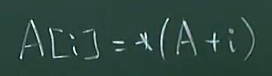 A[i] = *(A+i)